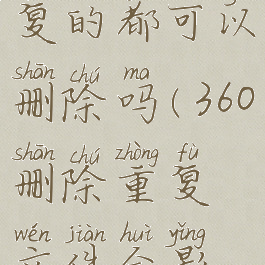 复的都可以
shān chú ma
删除吗(360
shān chú zhòng fù
删除重复
wén jiàn huì yǐng
文件会影